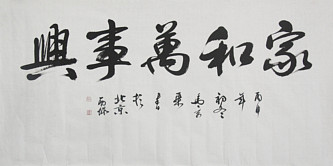 家和萬事興
丙申
年
初冬
馬
東
書
於
北京